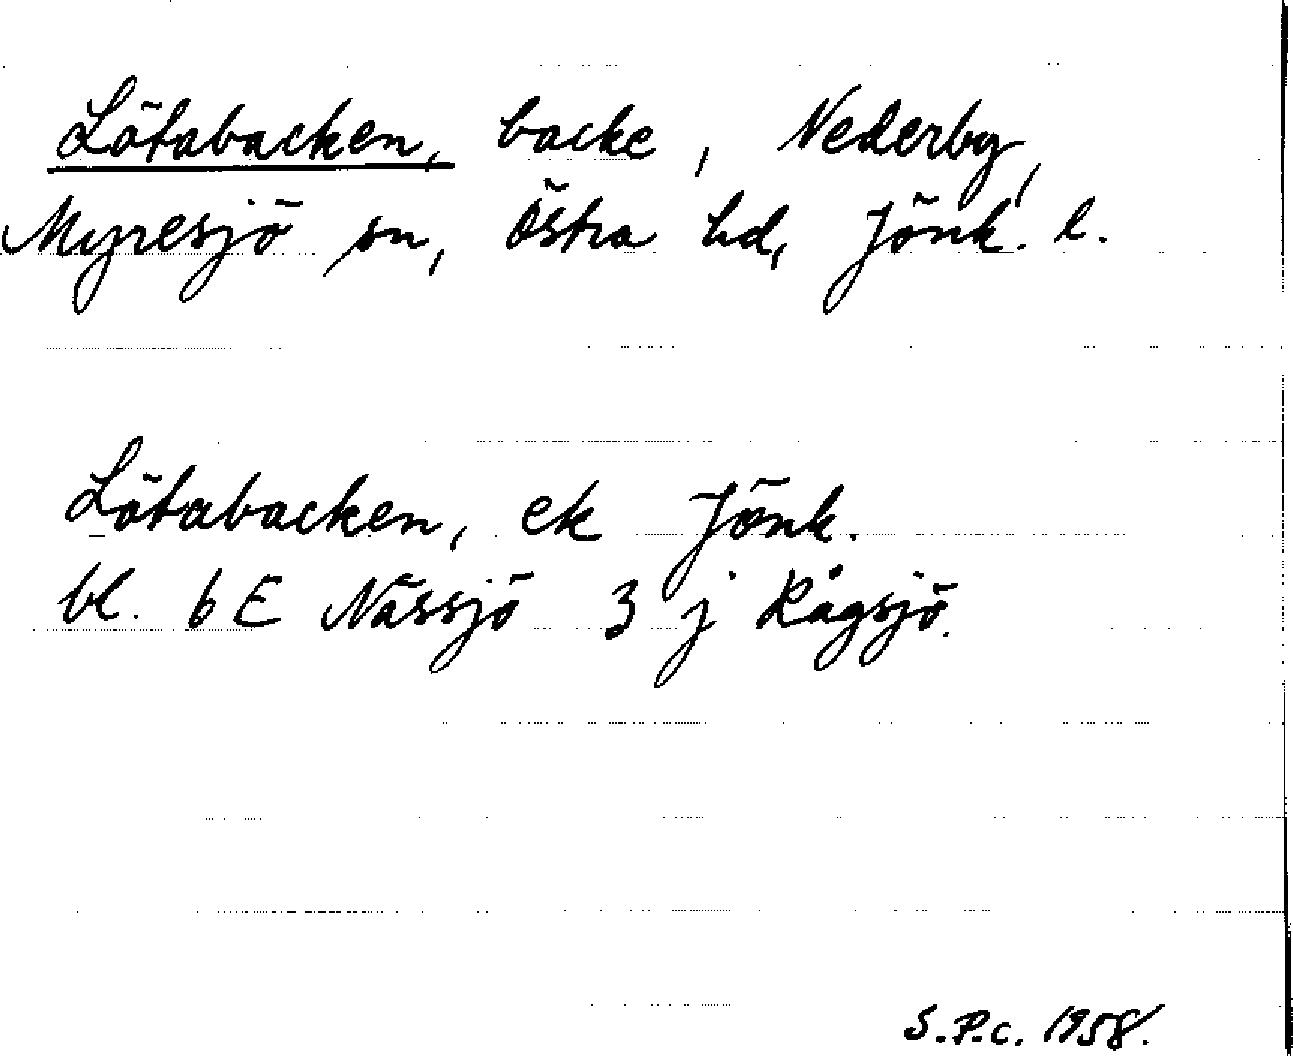 Lötabacken, backe, Nederby,
Myresjö sn, Östra hd, Jönk. l.
Lötabacken, ek Jönk.
bl. 6 E Nässjö 3 j Rågsjö.
S.P.c. 1958.